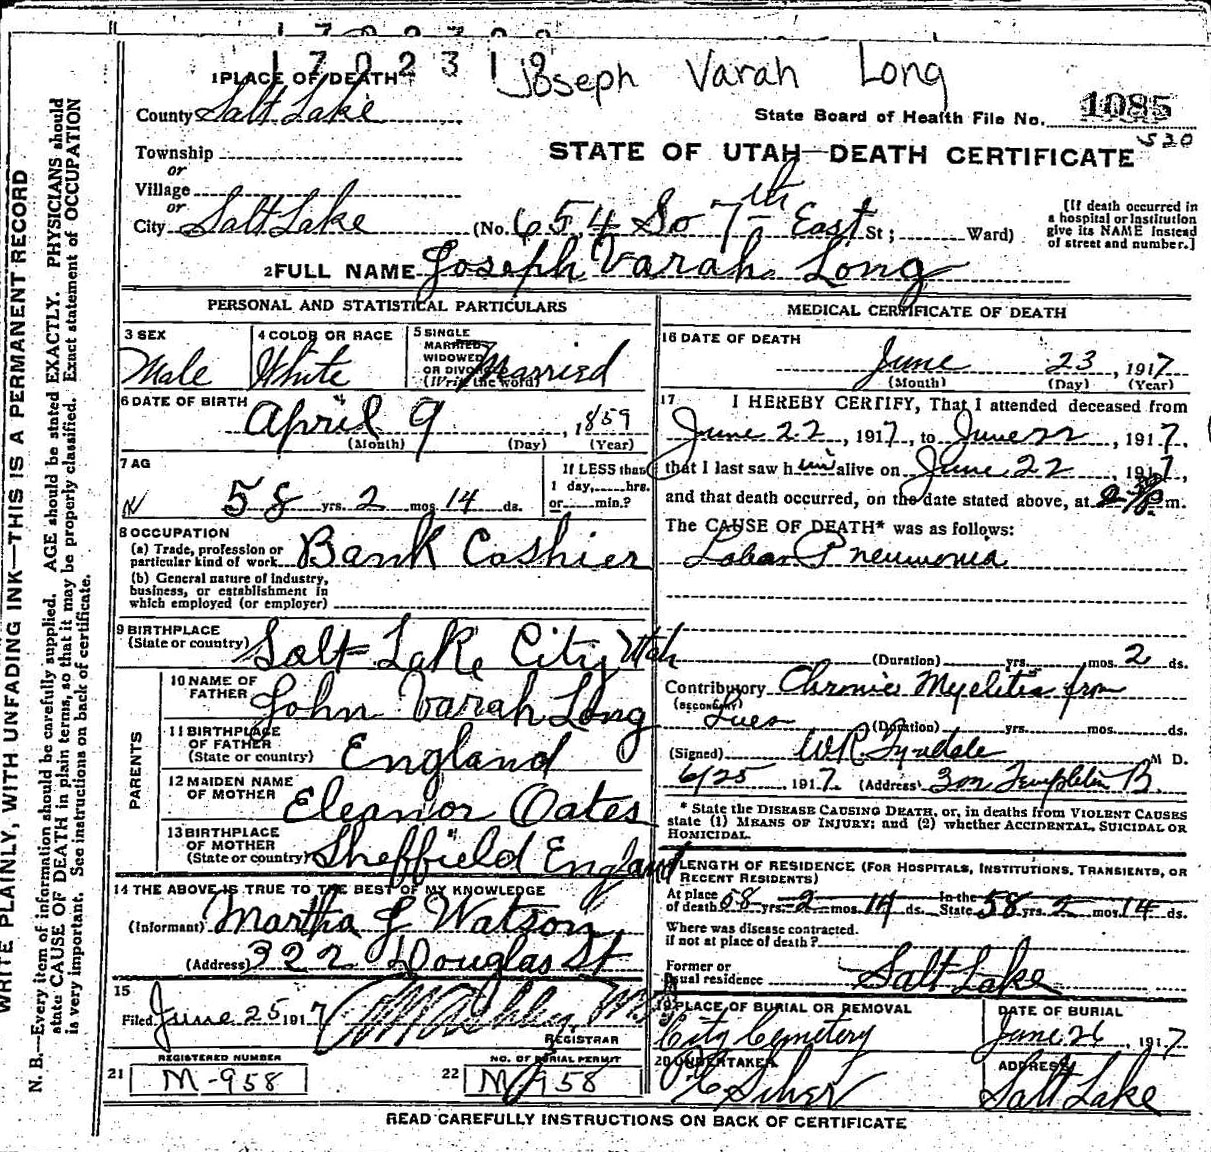 1702319
Joseph Varah Long
1 PLACE OF DEATH
County Salt Lake
State Board of Health File No. 1085
530
Township
or
Village
or
STATE OF UTAH—DEATH CERTIFICATE
City Salt Lake (No. 654 So 7th East St; Ward)
[If death occurred in
a hospital or institution
give its NAME instead
of street and number.]
2 FULL NAME Joseph Varah Long
PERSONAL AND STATISTICAL PARTICULARS
3 SEX
Male
4 COLOR OR RACE
White
5 SINGLE
MARRIED
WIDOWED
OR DIVORCED
(Write the word)
Married
6 DATE OF BIRTH
April 9, 1859
(Month) (Day) (Year)
7 AG
58 yrs. 2 mos 14 ds.
If LESS than
1 day, hrs.
or min.?
8 OCCUPATION
(a) Trade, profession or
particular kind of work Bank Cashier
(b) General nature of industry,
business, or establishment in
which employed (or employer)
9 BIRTHPLACE
(State or country) Salt Lake City Utah
PARENTS
10 NAME OF
FATHER John Varah Long
11 BIRTHPLACE
OF FATHER
(State or country) England
12 MAIDEN NAME
OF MOTHER Eleanor Oates
13 BIRTHPLACE
OF MOTHER
(State or country) Sheffield England
14 THE ABOVE IS TRUE TO THE BEST OF MY KNOWLEDGE
(Informant) Martha J Watson
(Address) 322 Douglas St
15
Filed June 25 1917
REGISTRAR
REGISTERED NUMBER
21 M-958
NO. OF BURIAL PERMIT
22 M 958
MEDICAL CERTIFICATE OF DEATH
16 DATE OF DEATH
June 23, 1917
(Month) (Day) (Year)
17 I HEREBY CERTIFY, That I attended deceased from
June 22, 1917, to June 22, 1917,
that I last saw him alive on June 22, 1917,
and that death occurred, on the date stated above, at m.
The CAUSE OF DEATH* was as follows:
Lobar Pneumonia
(Duration) yrs. mos. 2 ds.
Contributory Chronic Myelitis from
(SECONDARY) Lues (Duration) yrs. mos. ds.
(Signed) W.R. Tyndale M D.
6/25 1917. (Address) Templeton B.
* State the DISEASE CAUSING DEATH, or, in deaths from VIOLENT CAUSES
state (1) MEANS OF INJURY; and (2) whether ACCIDENTAL, SUICIDAL OR
HOMICIDAL.
LENGTH OF RESIDENCE (FOR HOSPITALS, INSTITUTIONS, TRANSIENTS, OR
RECENT RESIDENTS)
At place
of death 58 yrs. 2 mos. 14 ds. In the State 58 yrs. 2 mos 14 ds.
Where was disease contracted.
if not at place of death?
Former or
usual residence Salt Lake
19 PLACE OF BURIAL OR REMOVAL
City Cemetery
DATE OF BURIAL
June 26, 1917
20 UNDERTAKER
ADDRESS
Salt Lake
READ CAREFULLY INSTRUCTIONS ON BACK OF CERTIFICATE
WRITE PLAINLY, WITH UNFADING INK—THIS IS A PERMANENT RECORD
N. B.—Every item of information should be carefully supplied. AGE should be stated EXACTLY. PHYSICIANS should
state CAUSE OF DEATH in plain terms, so that it may be properly classified. Exact statement of OCCUPATION
is very important. See instructions on back of certificate.